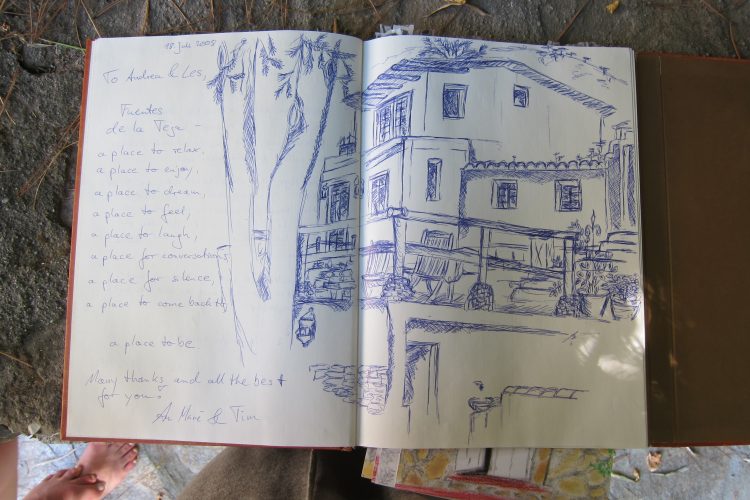 18. Juli 2005
To Andrea & Les,
Fuentes
de la Teja -
a place to relax,
a place to enjoy,
a place to dream,
a place to feel,
a place to laugh,
a place for conversations
a place for silence,
a place to come back to,
a place to be
Many thanks and all the best
for you!
Marie & Tim